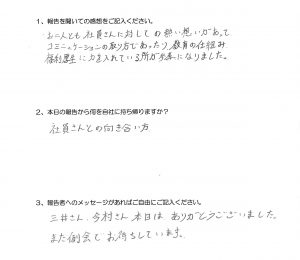 1、報告を聞いての感想をご記入ください。
お二人とも社員さんに対しての熱い想いがあって
コミニュケーションの取り方であったり、教育の仕組み
福利厚生に力を入れている所が参考になりました。
2、本日の報告から何を自社に持ち帰りますか？
社員さんとの向き合い方
3、報告者へのメッセージがあればご自由にご記入ください。
三井さん、今村さん 本日は ありがとうございました。
また例会でお待ちしています。